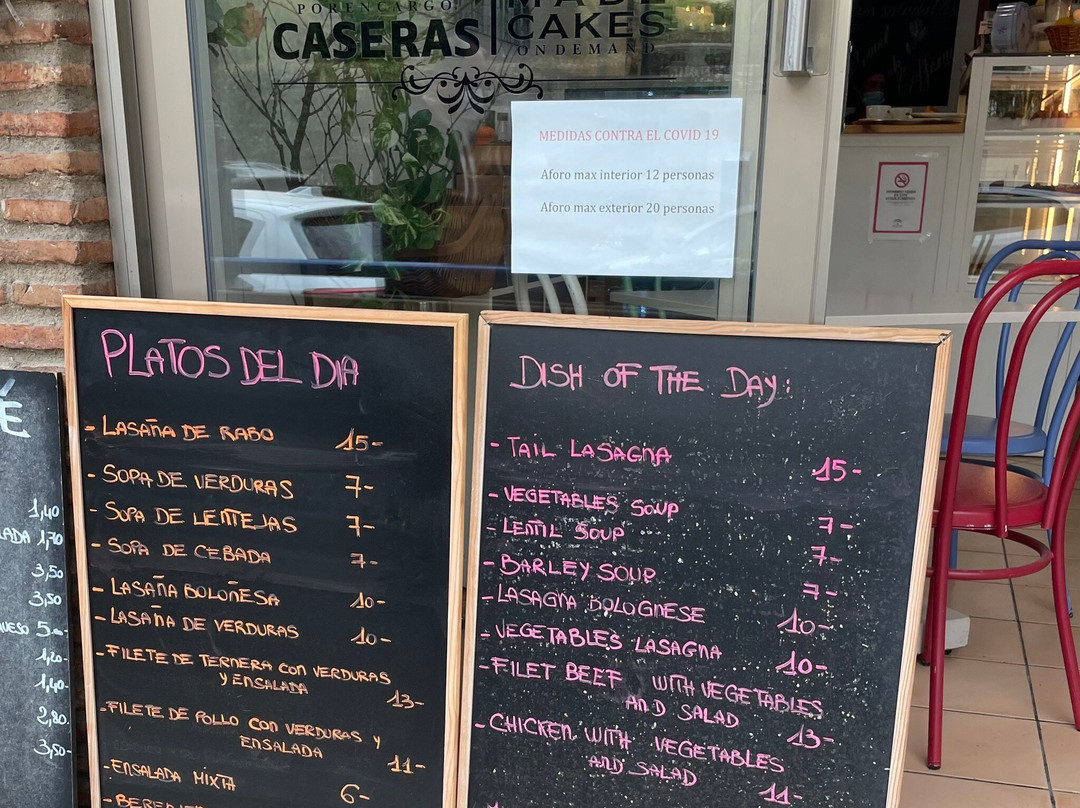 POR ENCARGO
CASERAS
MADE
CAKES
ON DEMAND
MEDIDAS CONTRA EL COVID 19
Aforo max interior 12 personas
Aforo max exterior 20 personas
É
1,40
LADA 1,70
3,50
3,50
QUESO 5.-
1,20-
1,40-
2,80.
3,50-
PLATOS DEL DIA
- LASAÑA DE RABO 15-
- SOPA DE VERDURAS 7-
- SOPA DE LENTEJAS 7-
- SOPA DE CEBADA 7-
- LASAÑA BOLOÑESA 10-
- LASAÑA DE VERDURAS 10-
- FILETE DE TERNERA CON VERDURAS
Y ENSALADA 13-
- FILETE DE POLLO CON VERDURAS Y
ENSALADA 11-
- ENSALADA MIXTA 6-
DISH OF THE DAY:
- TAIL LASAGNA 15-
- VEGETABLES SOUP 7-
- LENTIL SOUP 7-
- BARLEY SOUP 7-
- LASAGNA BOLOGNESE 10-
- VEGETABLES LASAGNA 10-
- FILET BEEF WITH VEGETABLES
AND SALAD 13-
- CHICKEN WITH VEGETABLES
AND SALAD 11-